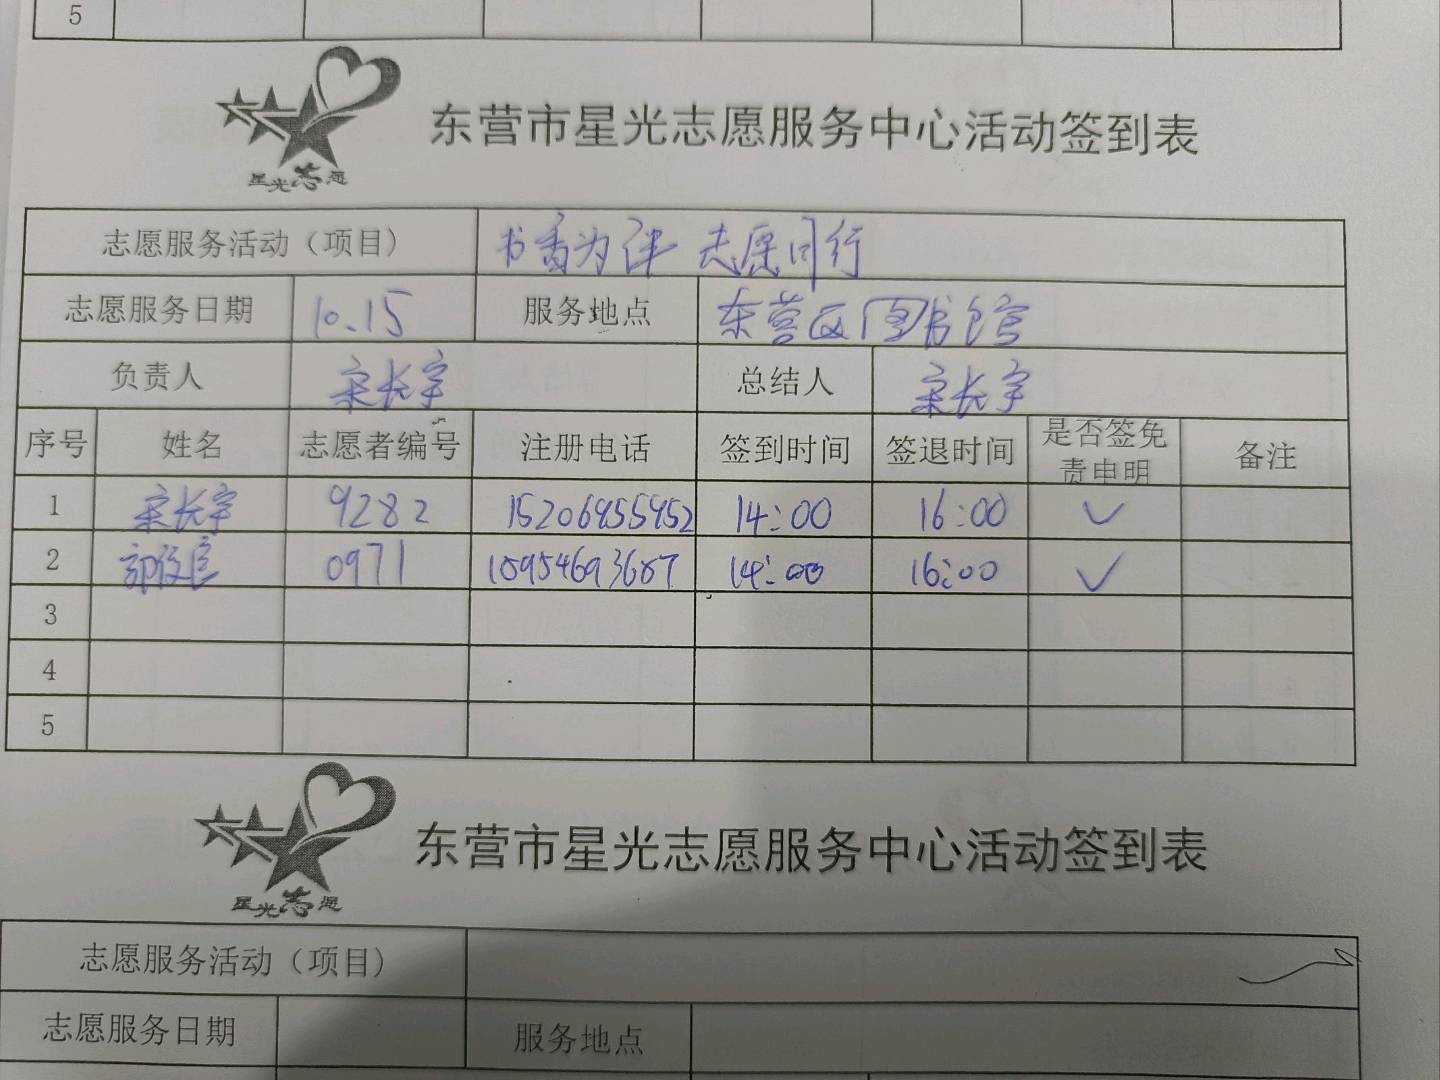 5
星光志愿
东营市星光志愿服务中心活动签到表
志愿服务活动（项目） 书香为伴 志愿同行
志愿服务日期 10.15 服务地点 东营区图书馆
负责人 宋长宇 总结人 宋长宇
序号 姓名 志愿者编号 注册电话 签到时间 签退时间 是否签免责申明 备注
1 宋长宇 9282 14:00 16:00 ✓
2 0971 14:00 16:00 ✓
3
4
5
星光志愿
东营市星光志愿服务中心活动签到表
志愿服务活动（项目）
志愿服务日期 服务地点